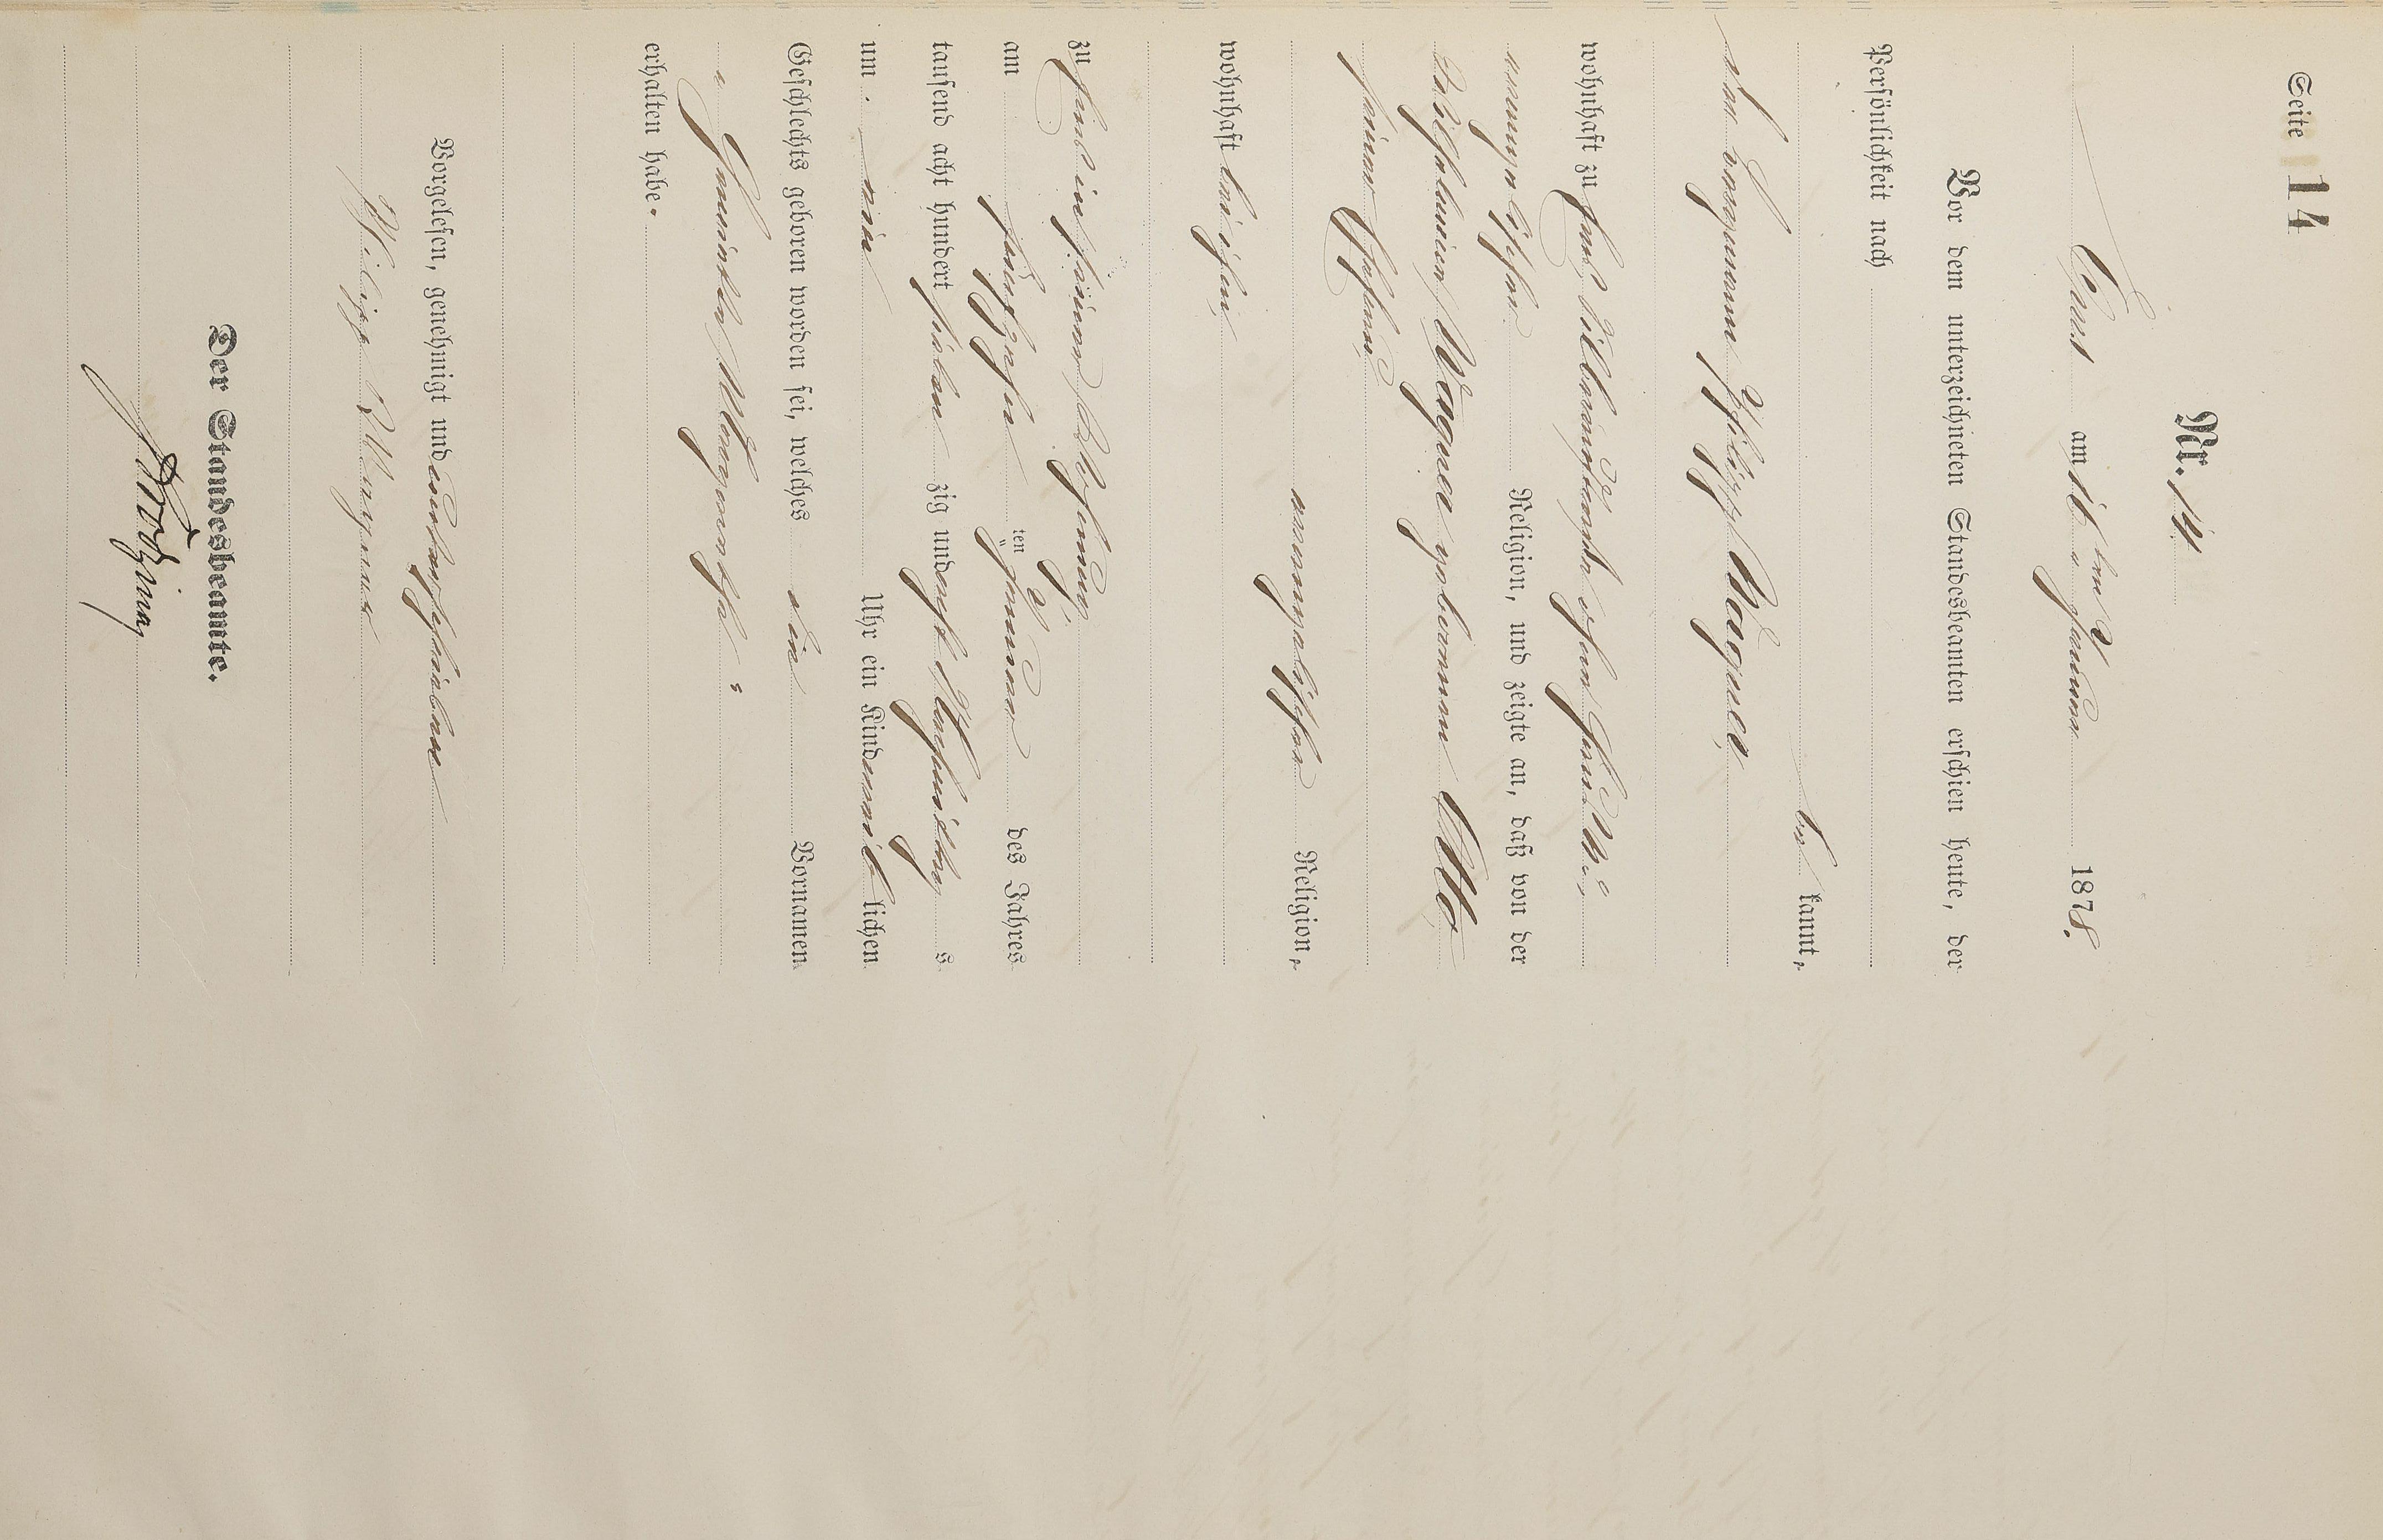 Seite 14
Nr. 14.
am 16ten Januar 1878.
Vor dem unterzeichneten Standesbeamten erschien heute, der
Persönlichkeit nach
be kannt,
der Bergmann Philipp Wagner,
wohnhaft zu
evangelischer Religion, und zeigte an, daß von der
Wilhelmine Wagner geborenen Otto,
seiner Ehefrau,
evangelischer Religion,
wohnhaft bei ihm,
zu in seiner Wohnung,
am fünfzehn ten Januar des Jahres
tausend acht hundert sieben zig und acht Nachmittags
um ein Uhr ein Kind weib lichen
Geschlechts geboren worden sei, welches die Vornamen
„Henriette Margaretha“
erhalten habe.
Vorgelesen, genehmigt und unterschrieben
Philipp Wagner
Der Standesbeamte.